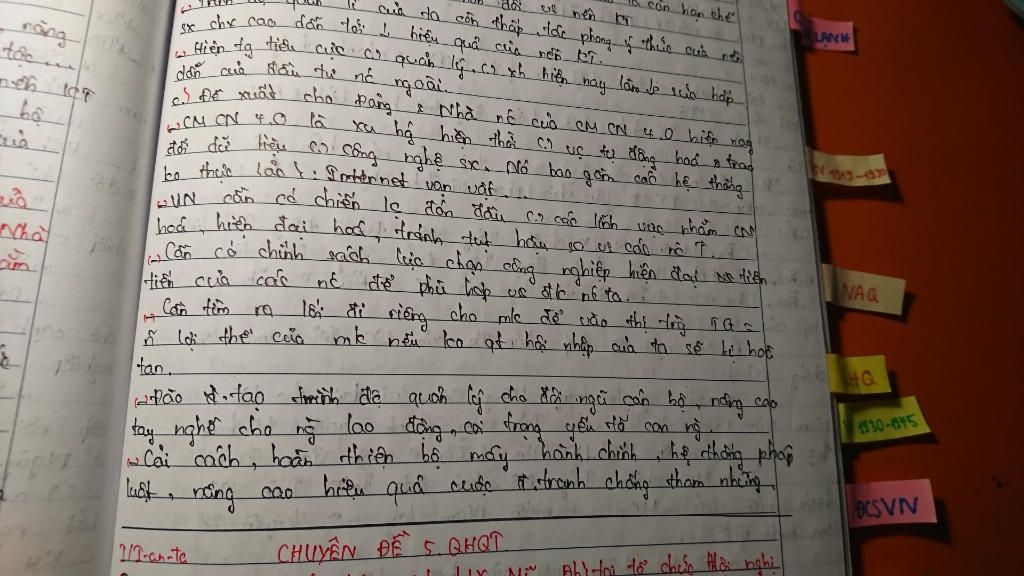 quản lí của ta còn thấp, tác phong, ý thức của nền
sx chx cao dẫn tới ↓ hiệu quả của nền KT.
Hiện tg tiêu cực quản lý, xh hiện nay làm hấp
dẫn của đầu tư nc ngoài.
c) Đề xuất cho Đảng & Nhà nc của CM CN 4.0 hiện nay
CM CN 4.0 là xu hg hiện thời tự động hoá & trao
đổi dữ liệu công nghệ sx. Nó bao gồm các hệ thống
ko thực Internet vạn vật...
VN cần có chiến lc đón đầu các lĩnh vực nhằm CN
hoá, hiện đại hoá, tránh tụt hậu so vs các nc
Cần có chính sách lựa chọn công nghiệp hiện đại tiên
tiến của các nc để phù hợp vs đk nc ta.
Cần tìm ra lối đi riêng cho mk để vào thị trg TG =
lợi thế của mk nếu ko qt hội nhập của ta sẽ bị hoà
tan.
Đào tạo trình độ quản lý cho đội ngũ cán bộ, nâng cao
tay nghề cho ng lao động, coi trọng yếu tố con ng.
Cải cách, hoàn thiện bộ máy hành chính, hệ thống pháp
luật, nâng cao hiệu quả cuộc đ.tranh chống tham nhũng.
CHUYÊN ĐỀ 5. QHQT
1/I-an-ta
tổ chức Hội nghị
năng
nền KT
bộ
quả
Nhà
LẠNH
1919-1930
NAQ
HQ
1930-1945
ĐCSVN